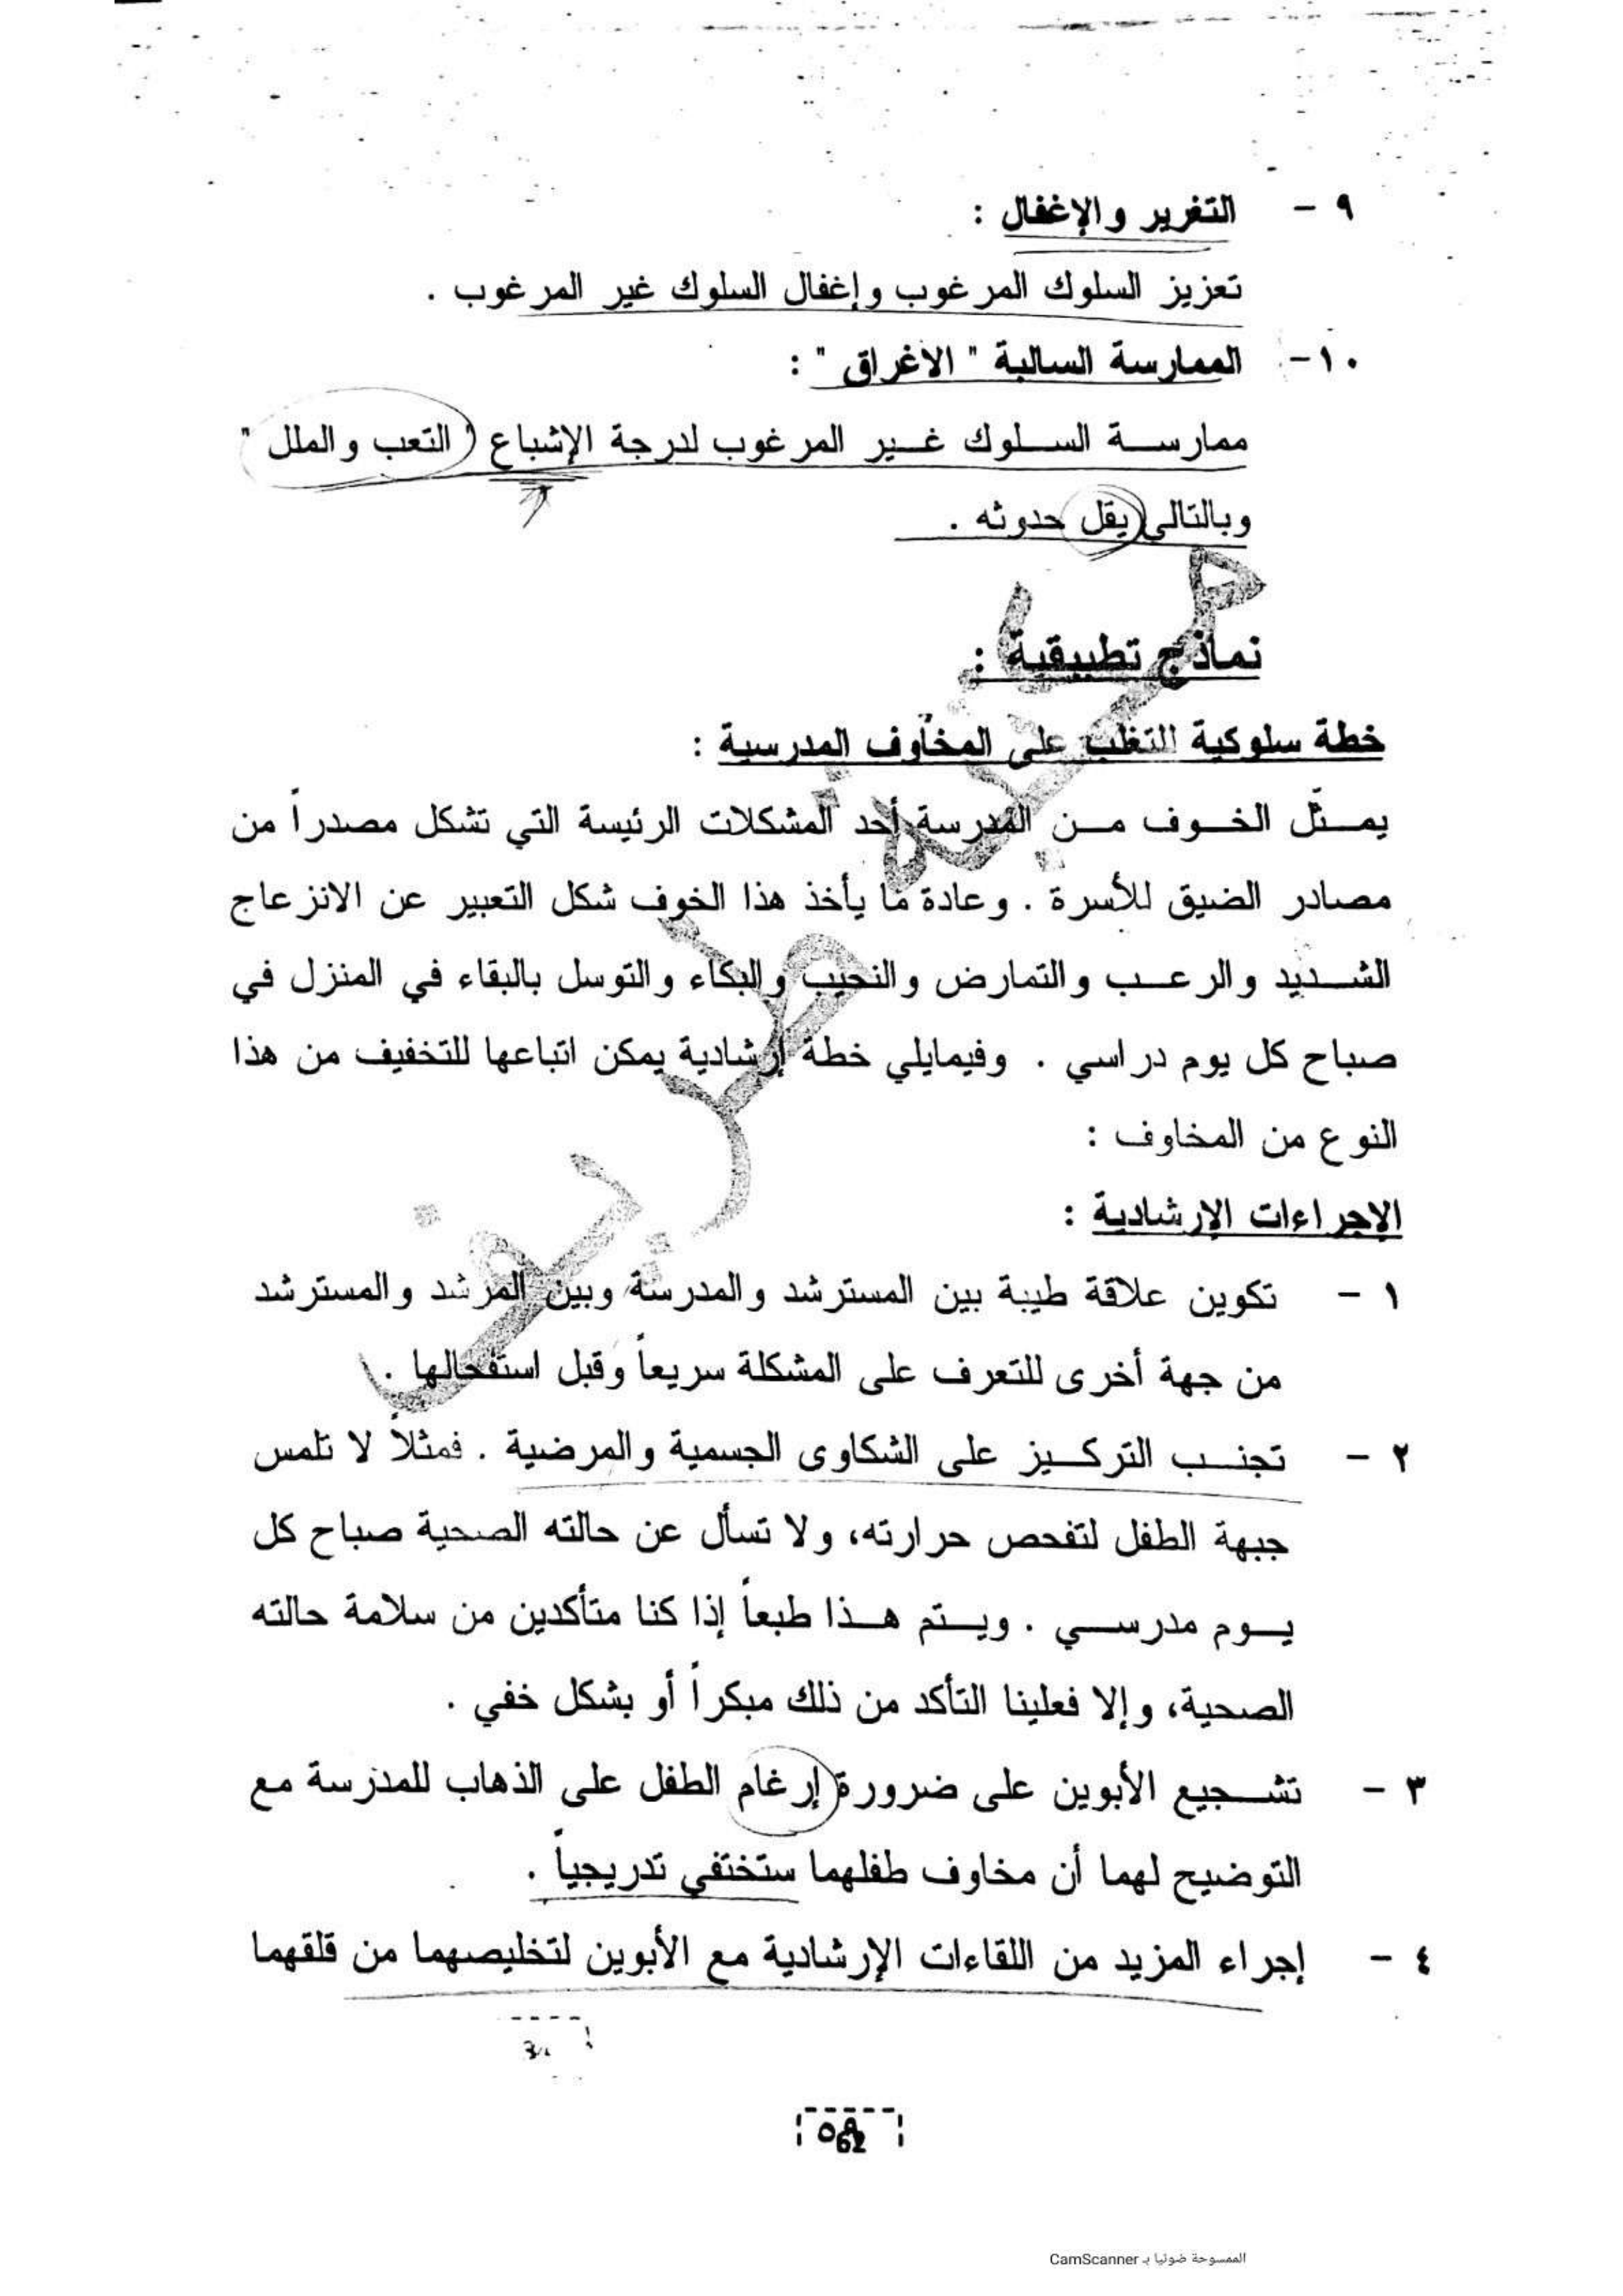 ٩ - التغرير والإغفال :
تعزيز السلوك المرغوب وإغفال السلوك غير المرغوب .
١٠- الممارسة السالبة " الاغراق " :
ممارسة السلوك غير المرغوب لدرجة الإشباع " التعب والملل "
وبالتالي يقل حدوثه .
نماذج تطبيقية :
خطة سلوكية للتغلب على المخاوف المدرسية :
يمثّل الخوف من المدرسة أحد المشكلات الرئيسة التي تشكل مصدراً من
مصادر الضيق للأسرة . وعادة ما يأخذ هذا الخوف شكل التعبير عن الانزعاج
الشديد والرعب والتمارض والنحيب والبكاء والتوسل بالبقاء في المنزل في
صباح كل يوم دراسي . وفيمايلي خطة إرشادية يمكن اتباعها للتخفيف من هذا
النوع من المخاوف :
الإجراءات الإرشادية :
١ - تكوين علاقة طيبة بين المسترشد والمدرسة وبين المرشد والمسترشد
من جهة أخرى للتعرف على المشكلة سريعاً وقبل استفحالها .
٢ - تجنب التركيز على الشكاوى الجسمية والمرضية . فمثلاً لا تلمس
جبهة الطفل لتفحص حرارته، ولا تسأل عن حالته الصحية صباح كل
يوم مدرسي . ويتم هذا طبعاً إذا كنا متأكدين من سلامة حالته
الصحية، وإلا فعلينا التأكد من ذلك مبكراً أو بشكل خفي .
٣ - تشجيع الأبوين على ضرورة إرغام الطفل على الذهاب للمدرسة مع
التوضيح لهما أن مخاوف طفلهما ستختفي تدريجياً .
٤ - إجراء المزيد من اللقاءات الإرشادية مع الأبوين لتخليصهما من قلقهما
62
الممسوحة ضوئيا بـ CamScanner